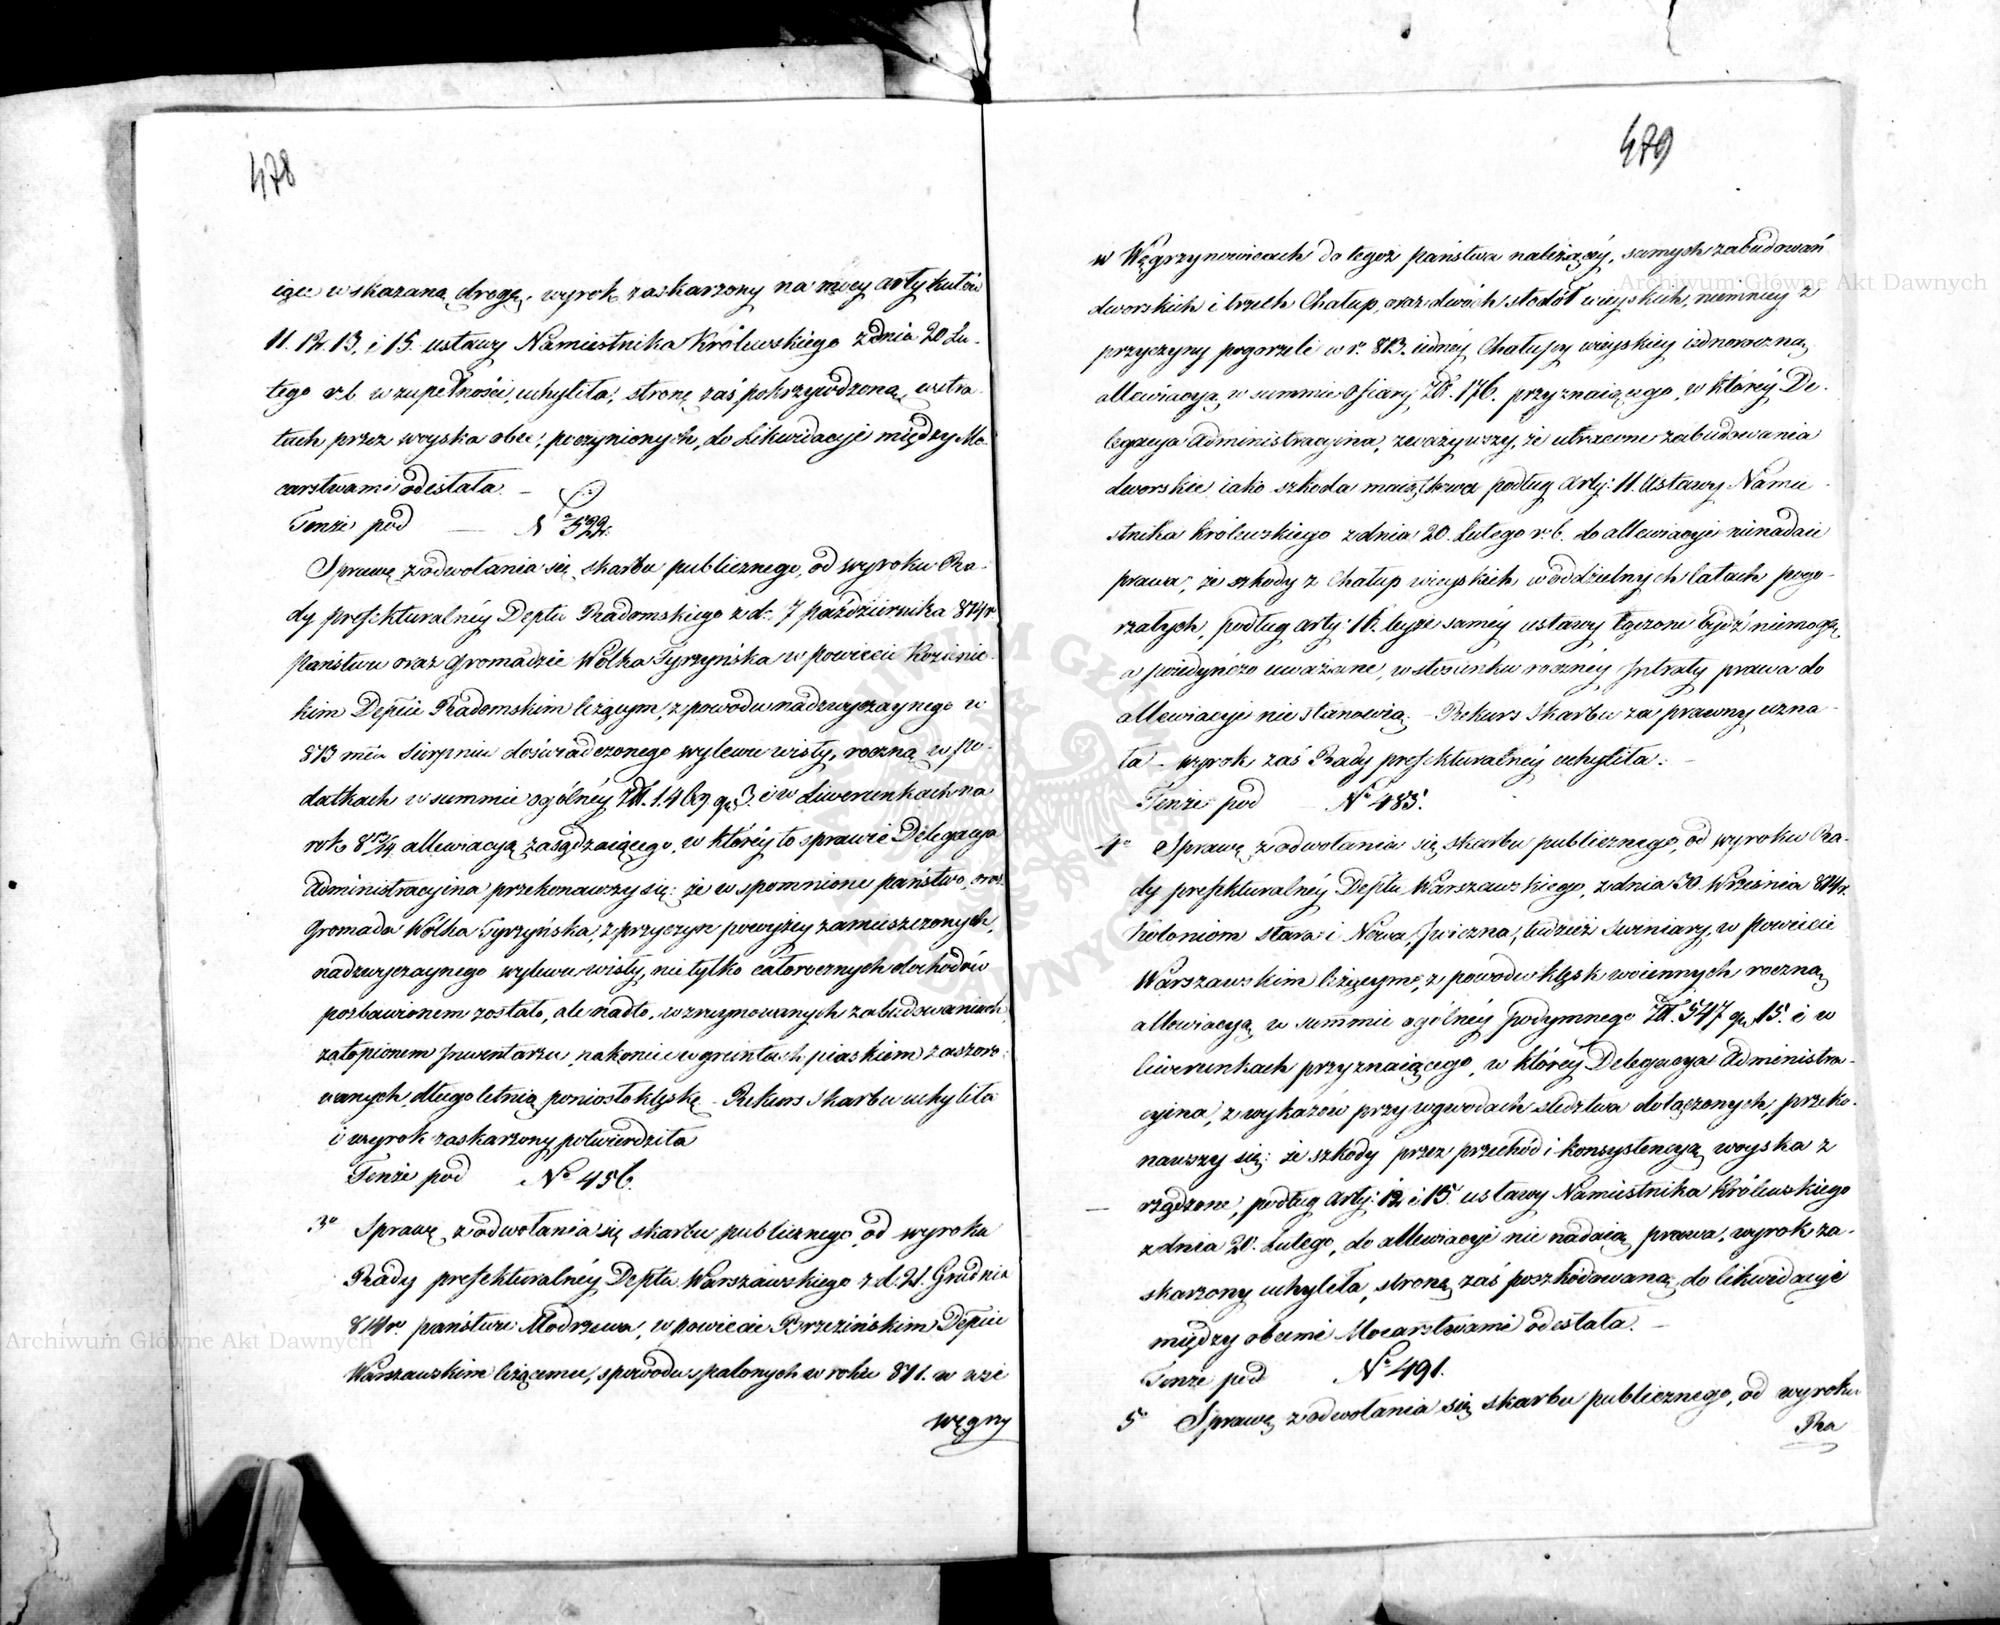 478
iąc wskazaną drogę, wyrok zaskarżony na mocy artykułów
11. 12. 13. i 15. ustawy Namiestnika Królewskiego z dnia 20 Lu-
tego r.b. w zupełności uchyliła, stronę zaś pokrzywdzoną w stra-
tach przez woyska obce poczynionych, do Likwidacyi między Mo-
carstwami odesłała. —
Tenże pod — N°
Sprawę z odwołania się skarbu publicznego, od wyroku Ra-
dy prefekturalnéy Deptu Radomskiego z d. 7 Października 814 r.
Państwu oraz Gromadzie Wólka Tyrzyńska w powiecie Kozienic-
kim Depcie Radomskim leżącym, z powodu nadzwyczaynego w
813 mca Sierpniu doświadczonego wylewu wisły, roczną w po-
datkach w summie ogólnéy Złł. 1469 gr. 3. i w Liwerunkach na
rok 813/14 allewiacyą zasądzaiącego, w któréy to sprawie Delegacya
Administracyina przekonawszy się: że wspomnione państwo oraz
Gromada Wólka Tyrzyńska, z przyczyn powyżey zamieszczonych,
nadzwyczaynego wylewu wisły, nietylko całorocznych dochodów
pozbawionem zostało, ale nadto, w zruynowanych zabudowaniach,
zatopionem Inwentarzu, nakoniec w gruntach piaskiem zaszoro-
wanych, długoletnią poniosło klęskę – Rekurs Skarbu uchyliła
i wyrok zaskarżony potwierdziła
Tenże pod N° 456.
3° Sprawę z odwołania się skarbu publicznego, od wyroku
Rady prefekturalnéy Deptu Warszawskiego z d. 21. Grudnia
814 r. państwu Modrzewa, w powiecie Brzezińskim Depcie
Warszawskim leżącemu, z powodu spalonych w roku 811. w wsi
Węgrzy
479
w Węgrzynowicach do tegoż państwa należącéy, samych zabudowań
dworskich i trzech Chałup, oraz dwóch stodół wieyskich, niemniey z
przyczyny pogorzeli w r. 813. iednéy Chałupy wieyskiey iednoroczną
allewiacyą w summie ofiary Złł. 176. przyznaiącego, w któréy De-
legacya Administracyina, zważywszy, że utracone zabudowania
dworskie iako szkoda maiątkowa podług Arty: 11. Ustawy Namie-
stnika Królewskiego z dnia 20. Lutego r.b. do allewiacyi nienadaie
prawa; że szkody z Chałup wieyskich w oddzielnych latach pogo-
rzałych, podług arty: 16. teyże saméy ustawy łączone bydź niemogą,
a poiedyńczo uważane, w stosunku rocznéy Intraty prawa do
allewiacyi nie stanowią; – Rekurs Skarbu za prawny uzna-
ła – wyrok zaś Rady prefekturalnéy uchyliła: —
Tenże pod N° 485.
4° Sprawę z odwołania się skarbu publicznego, od wyroku Ra-
dy prefekturalnéy Deptu Warszawskiego, z dnia 30. Września 814 r.
Koloniom Stara i Nowa Iwiczna, tudzież Świniary, w Powiecie
Warszawskim leżącym, z powodu klęsk woiennych roczną
allewiacyą w summie ogólnéy podymnego Złł. 547 gr. 15. i w
liwerunkach przyznaiącego, w któréy Delegacya Administra-
cyina, z wykazów przy wywodach śledztwa dołączonych, przeko-
nawszy się: że szkody przez przechód i konsystencyą woyska z
rządzone, podług Arty: 12 i 15. ustawy Namiestnika Królewskiego
z dnia 20. Lutego, do allewiacyi nie nadaią prawa, wyrok za-
skarżony uchyliła, stronę zaś poszkodowaną do likwidacyi
między obcemi Mocarstwami odesłała. —
Tenże pod N° 491.
5° Sprawę z odwołania się skarbu publicznego, od wyroku
Ra
Archiwum Główne Akt Dawnych
Archiwum Główne Akt Dawnych
ARCHIWUM GŁÓWNE AKT DAWNYCH